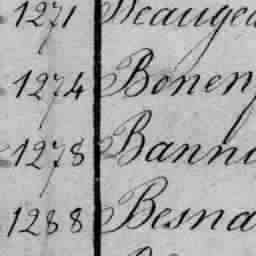 1271 Beauged
1274 Bonen
1278 Banni
1288 Besna